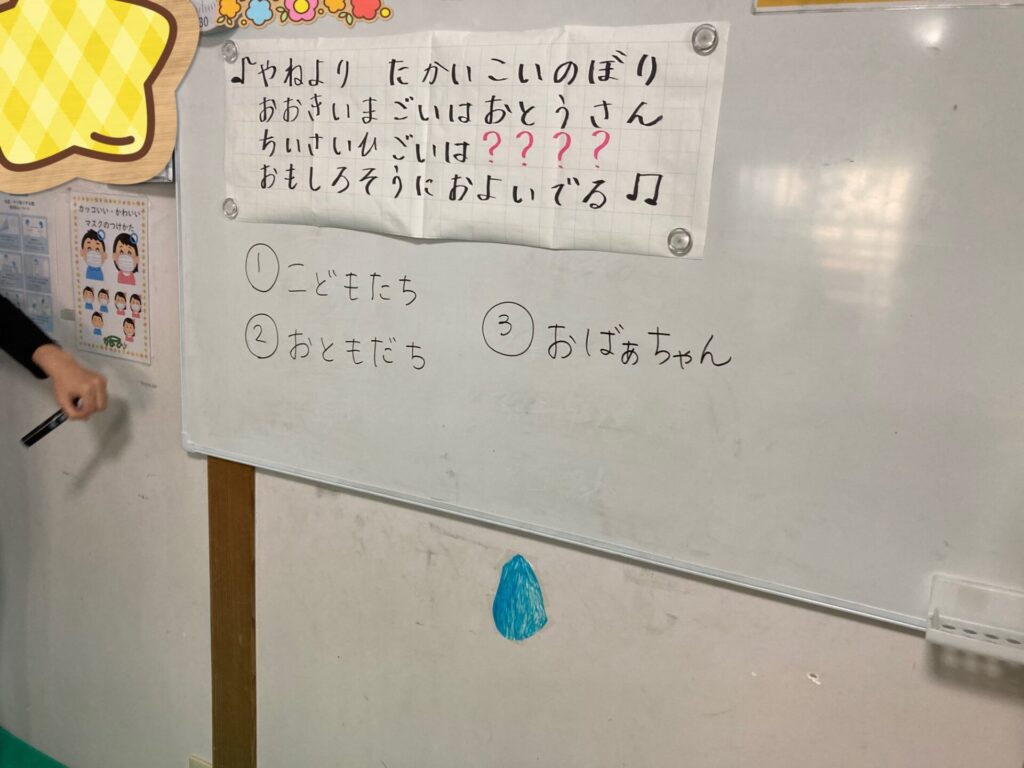 ♪やねより たかいこいのぼり
おおきいまごいはおとうさん
ちいさいひごいは????
おもしろそうにおよいでる♫
①こどもたち
②おともだち
③おばぁちゃん
カッコいい・かわいい
マスクのつけかた
30